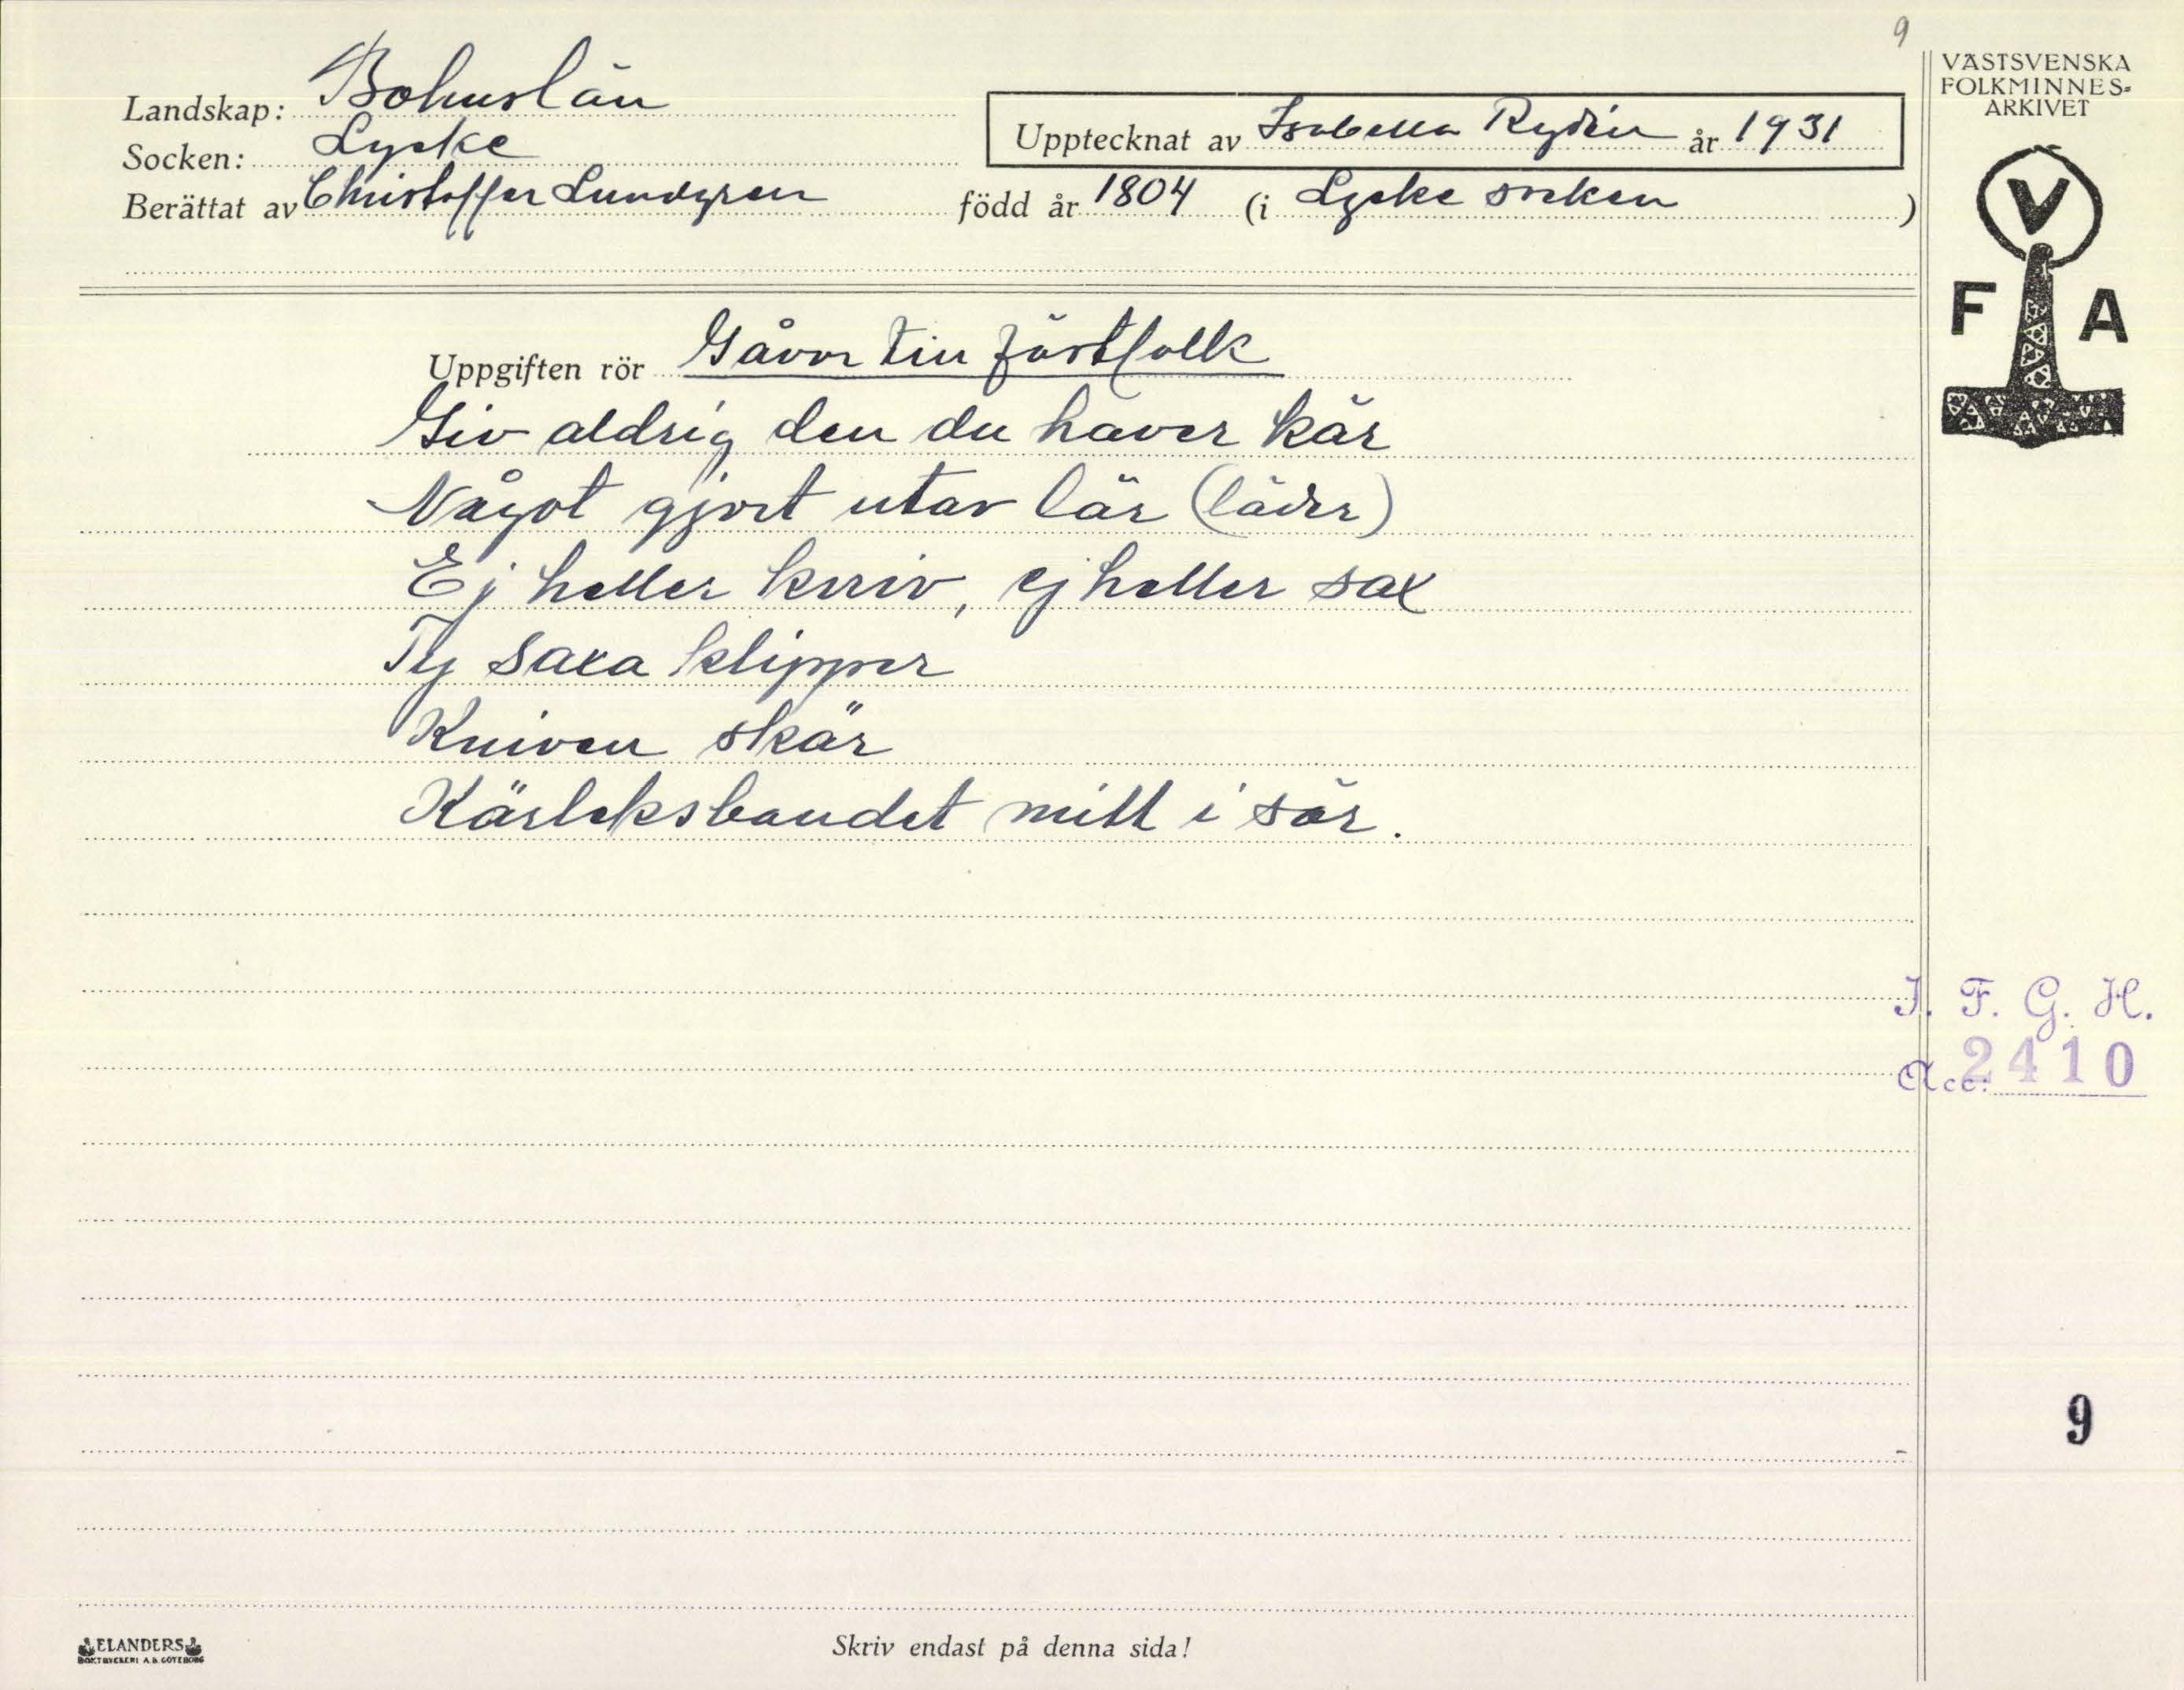 9
VÄSTSVENSKA
FOLKMINNES-
ARKIVET
Landskap: Bohuslän
Upptecknat av Isabella Rydén år 1931
Socken: Lycke
Berättat av Christoffer Lundgren född år 1804 (i Lycke socken )
V
F A
Uppgiften rör Gåvor till fästfolk
Giv aldrig den du haver kär
Något gjort utav lär (läder)
Ej heller kniv, ej heller sax
Ty saxa klipper
Kniven skär
Kärleksbandet mitt i sär.
I. F. G. H.
Acc: 2410
9
ELANDERS
BOKTRYCKERI A.B. GÖTEBORG
Skriv endast på denna sida!